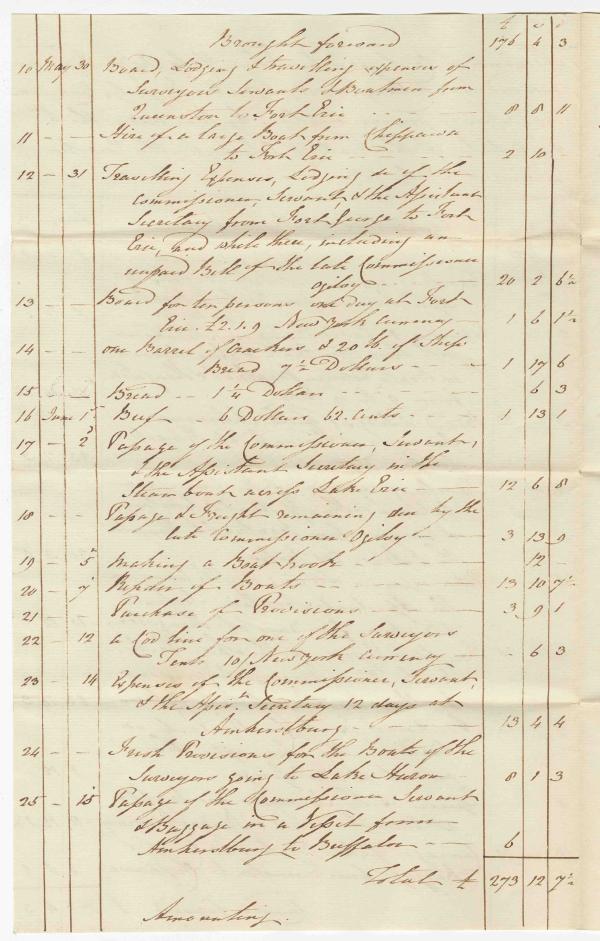 £ s d
Brought forward 176 4 3
10 May 30 Board, Lodging & travelling expenses of
Surveyors Servants & Boatmen from
Queenston to Fort Erie - - - 8 8 11
11 - - Hire of a large Boat from Chippawa
to Fort Erie - - - 2 10 -
12 - 31 Travelling Expenses, Lodging &c of the
Commissioner, Servant, & the Assistant
Secretary from Fort George to Fort
Erie, and while there, including an
unpaid Bill of the late Commissioner
Ogilvy - - - 20 2 6½
13 - - Board for ten persons one day at Fort
Erie. £2.1.9 New York currency - 1 6 1½
14 - - one Barrel of Crackers & 20 lb of Ship
Bread 7½ Dollars - - 1 17 6
15 - - Bread - - 1¼ Dollar - - - 6 3
16 June 1st Beef - 6 Dollars 62 cents - - 1 13 1
17 - 2d Passage of the Commissioner, Servant,
& the Assistant Secretary in the
Steam boat across Lake Erie - - 12 6 8
18 - - Passage & Freight remaining due by the
late Commissioner Ogilvy - - 3 13 9
19 - 5 Making a Boat hook - - - 12 -
20 - 7 Repair of Boats - - - 13 10 7½
21 - - Purchase of Provisions - - - 3 9 1
22 - 12 a Cod line for one of the Surveyors
Tents 10/ New York currency - - 6 3
23 - 14 Expenses of the Commissioner, Servant,
& the Assist. Secretary 12 days at
Amherstburg - - - 13 4 4
24 - - Fresh Provisions for the Boats of the
Surveyors going to Lake Huron - 8 1 3
25 - 15 Passage of the Commissioner Servant
& Baggage in a Vessel from
Amherstburg to Buffaloe - - 6
Total £ 273 12 7½
Amounting.